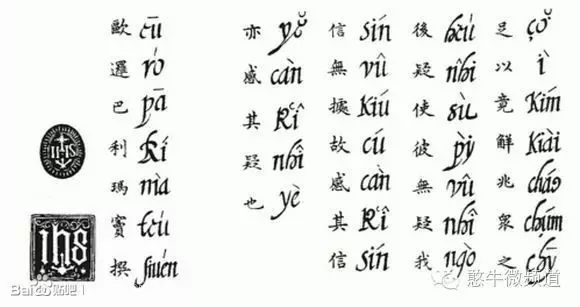 足 çŏ 以 ì 竟 Kím 解 Kiài 兆 cháo 衆 chúm 之 chȳ
後 héu 疑 nhî 使 sù 彼 pỳ 無 vû 疑 nhî 我 ngò
信 sín 無 vû 據 Kiú 故 cú 感 càn 其 Kʿî 信 sín
亦 yĕ 感 càn 其 Kʿî 疑 nhî 也 yè
歐 ēu 邏 ró 巴 pā 利 Rí 瑪 mà 竇 téu 撰
ihs
Bai贴吧
憨牛微频道